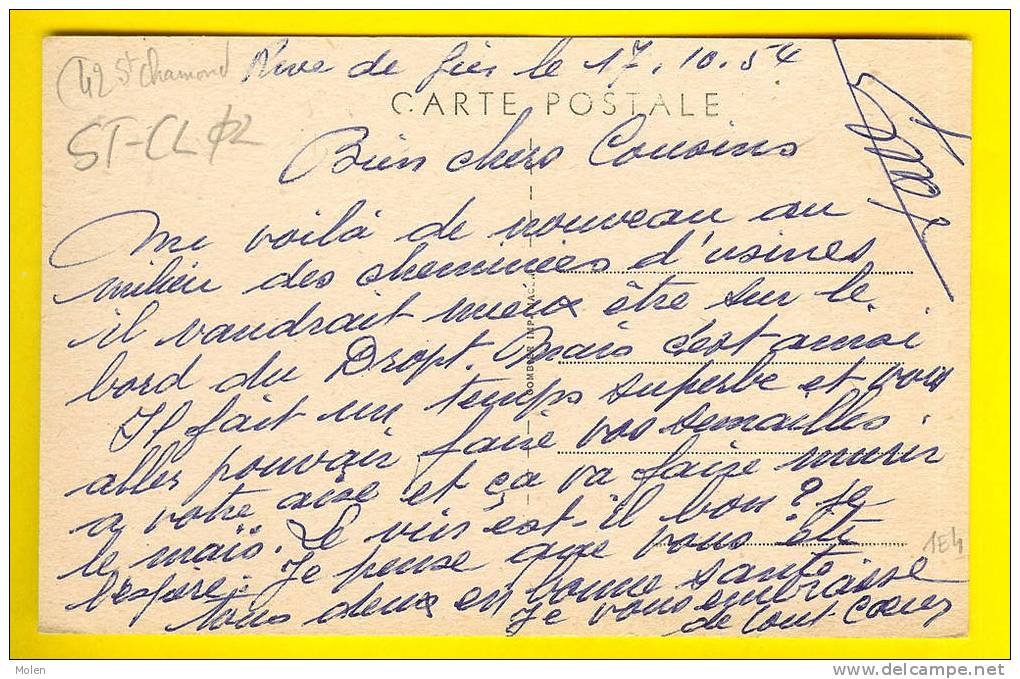 (42 St chamond
Rive de gier le 17.10.54
CARTE POSTALE
ST-CL
Bien chers Cousins
Me voilà de nouveau au
milieu des cheminées d'usines
il vaudrait mieux être sur le
bord du Dropt. Mais c'est ainsi
Il fait un temps superbe et vous
allez pouvoir faire vos semailles.
a votre aise et ça va faire murir
le maïs. Le vin est-il bon? je
l'espère. Je pense que vous êtes
tous deux en bonne santé
Je vous embrasse
de tout Coeur
COMBIER IMP. MACON
1E4
Molen
delcampe.net